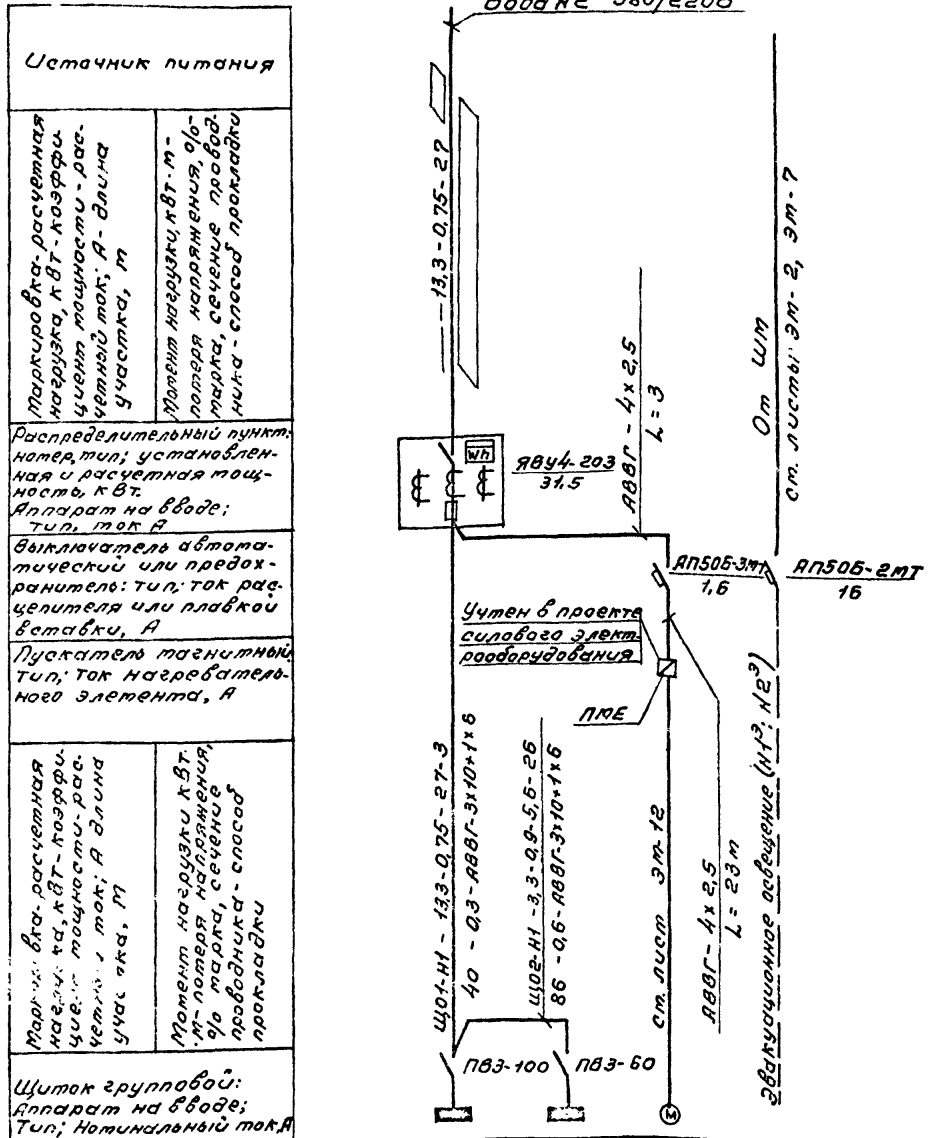 380/220В
Источник питания
Маркировка-расчетная
нагрузка, кВт-коэффи
циент мощности-рас-
четный ток; А-длина
участка, м
Момент нагрузки, кВт·м-
потеря напряжения, %-
марка, сечение провод-
ника-способ прокладки
Распределительный пункт:
номер, тип; установлен-
ная и расчетная мощ-
ность, кВт.
Аппарат на вводе;
тип, ток А
Выключатель автома-
тический или предох-
ранитель: тип; ток рас-
цепителя или плавкой
вставки, А
Пускатель магнитный
тип; ток нагреватель-
ного элемента, А
расчетная
кВт-коэффи-
мощности-рас-
ток; А длина
м
Момент нагрузки кВт.
·м-потеря напряжения,
% марка, сечение
проводника-способ
прокладки
Щиток групповой:
Аппарат на вводе;
Тип; Номинальный ток А
13,3-0,75-27
Wh
ЯВУ4-203
31,5
АВВГ-4х2,5
L=3
От ШМ
см. листы: ЭМ-2, ЭМ-7
АП50Б-3МТ
1,6
АП50Б-2МТ
16
Учтен в проекте
силового элект-
рооборудования
ПМЕ
ЩО1-Н1-13,3-0,75-27-3
40-0,3-АВВГ-3х10+1х6
ЩО2-Н1-3,3-0,9-5,6-26
86-0,6-АВВГ-3х10+1х6
см. лист ЭМ-12
АВВГ-4х2,5
L=23м
Эвакуационное освещение (Н1Э; Н2Э)
ПВ3-100
ПВ3-60
М